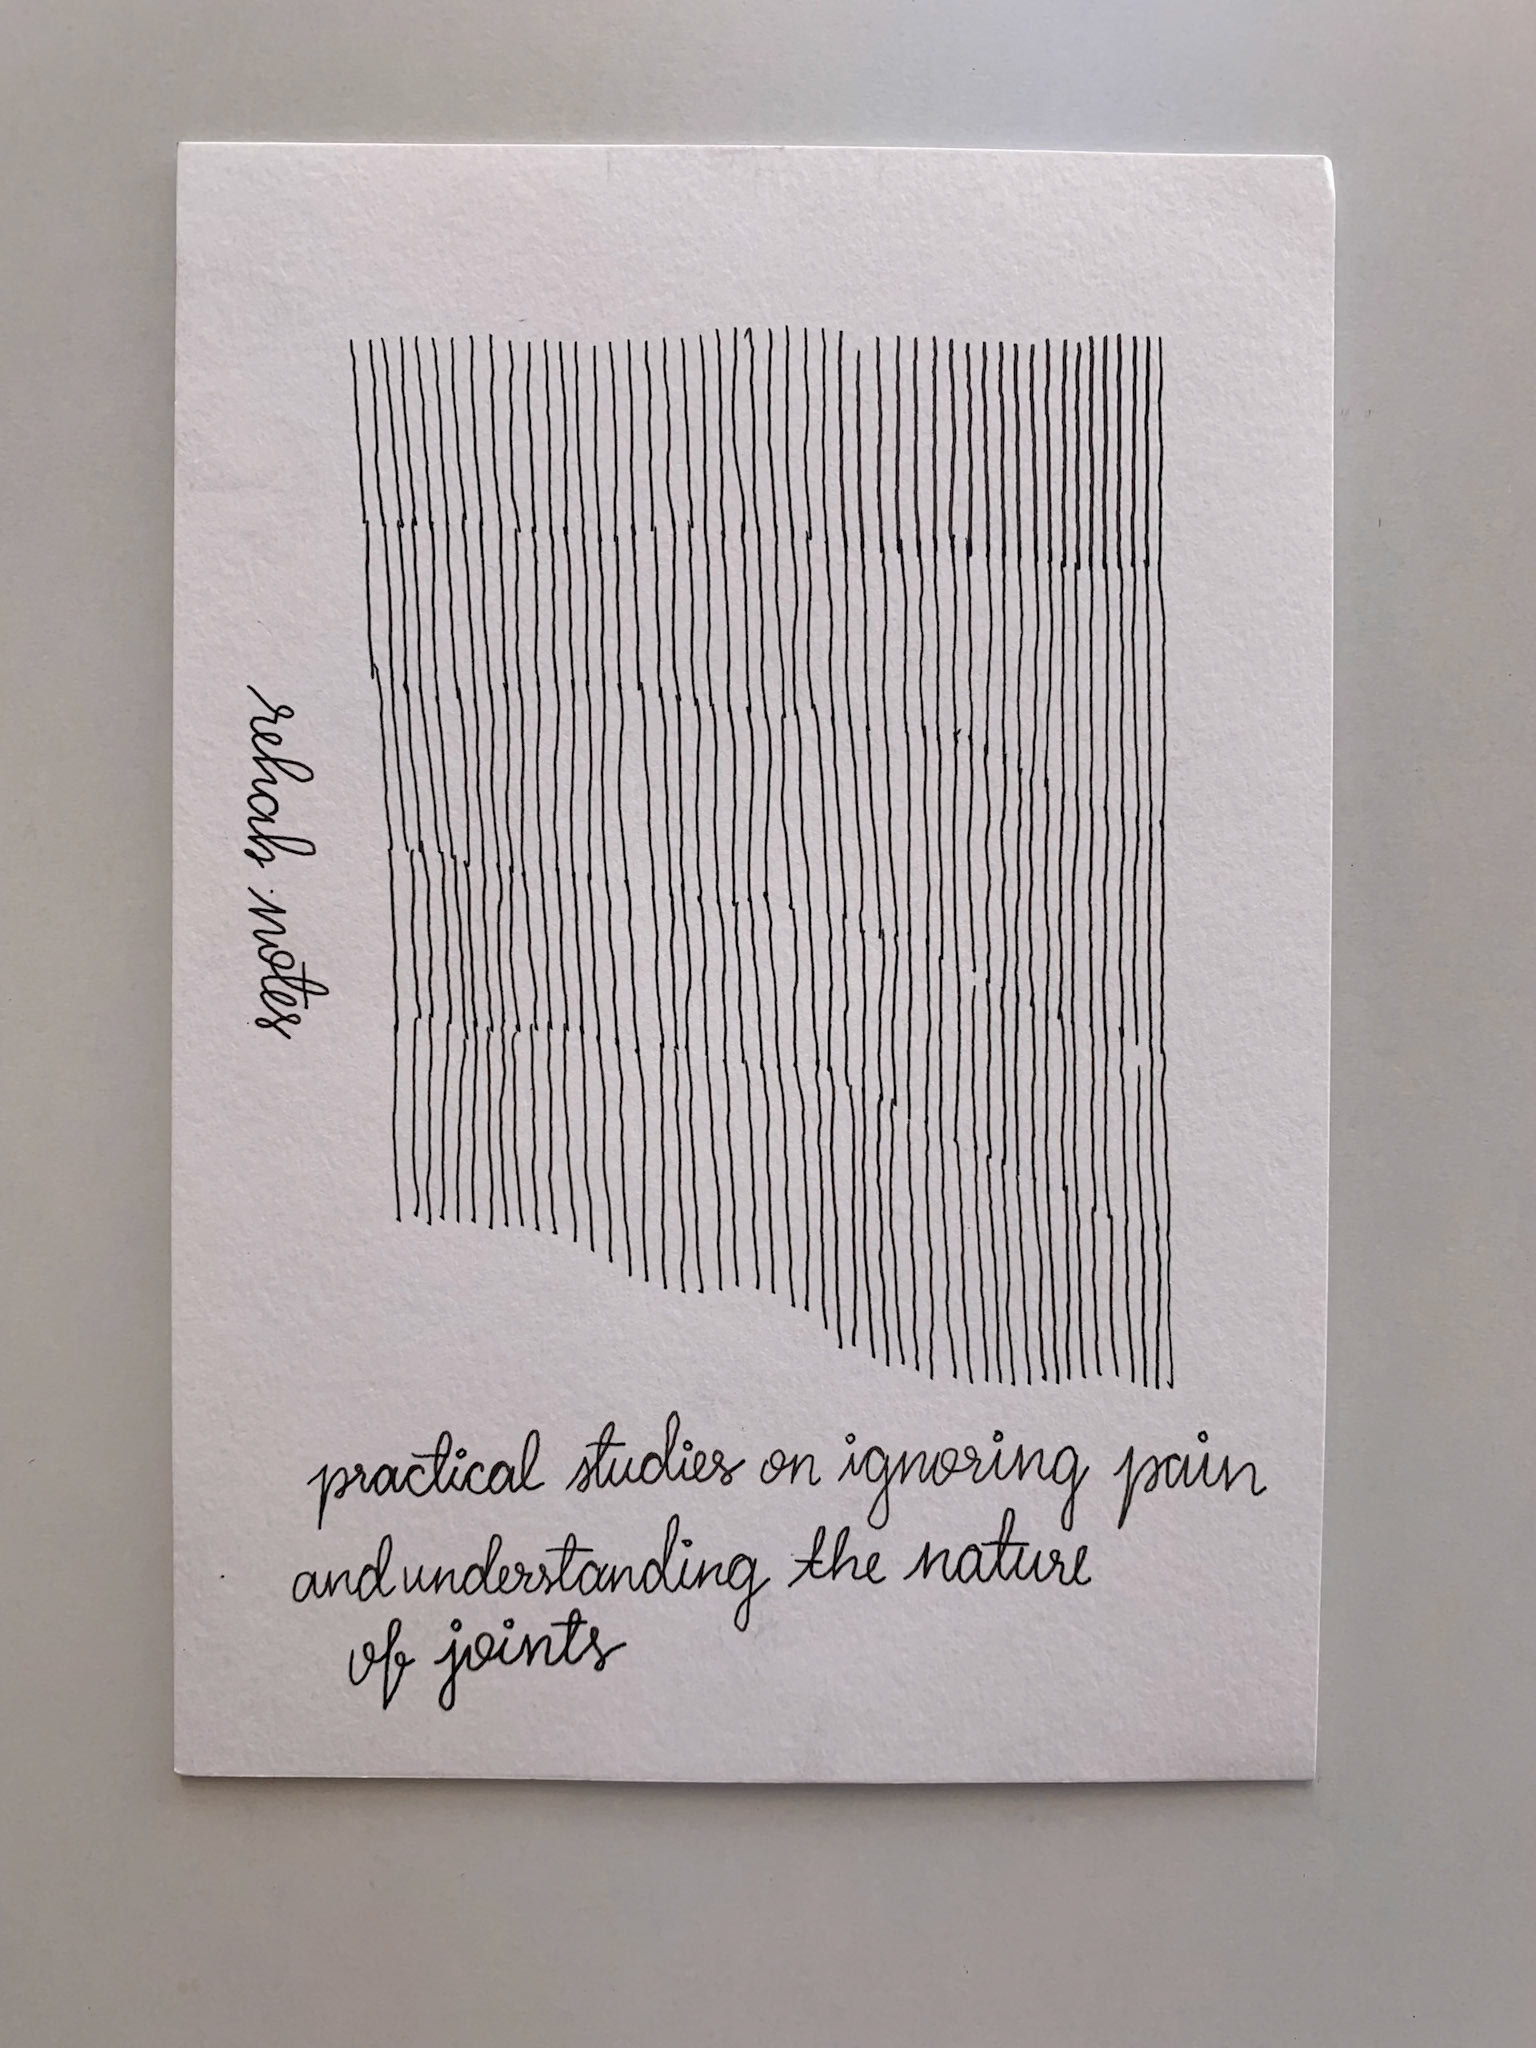 rehab notes
practical studies on ignoring pain
and understanding the nature
of joints